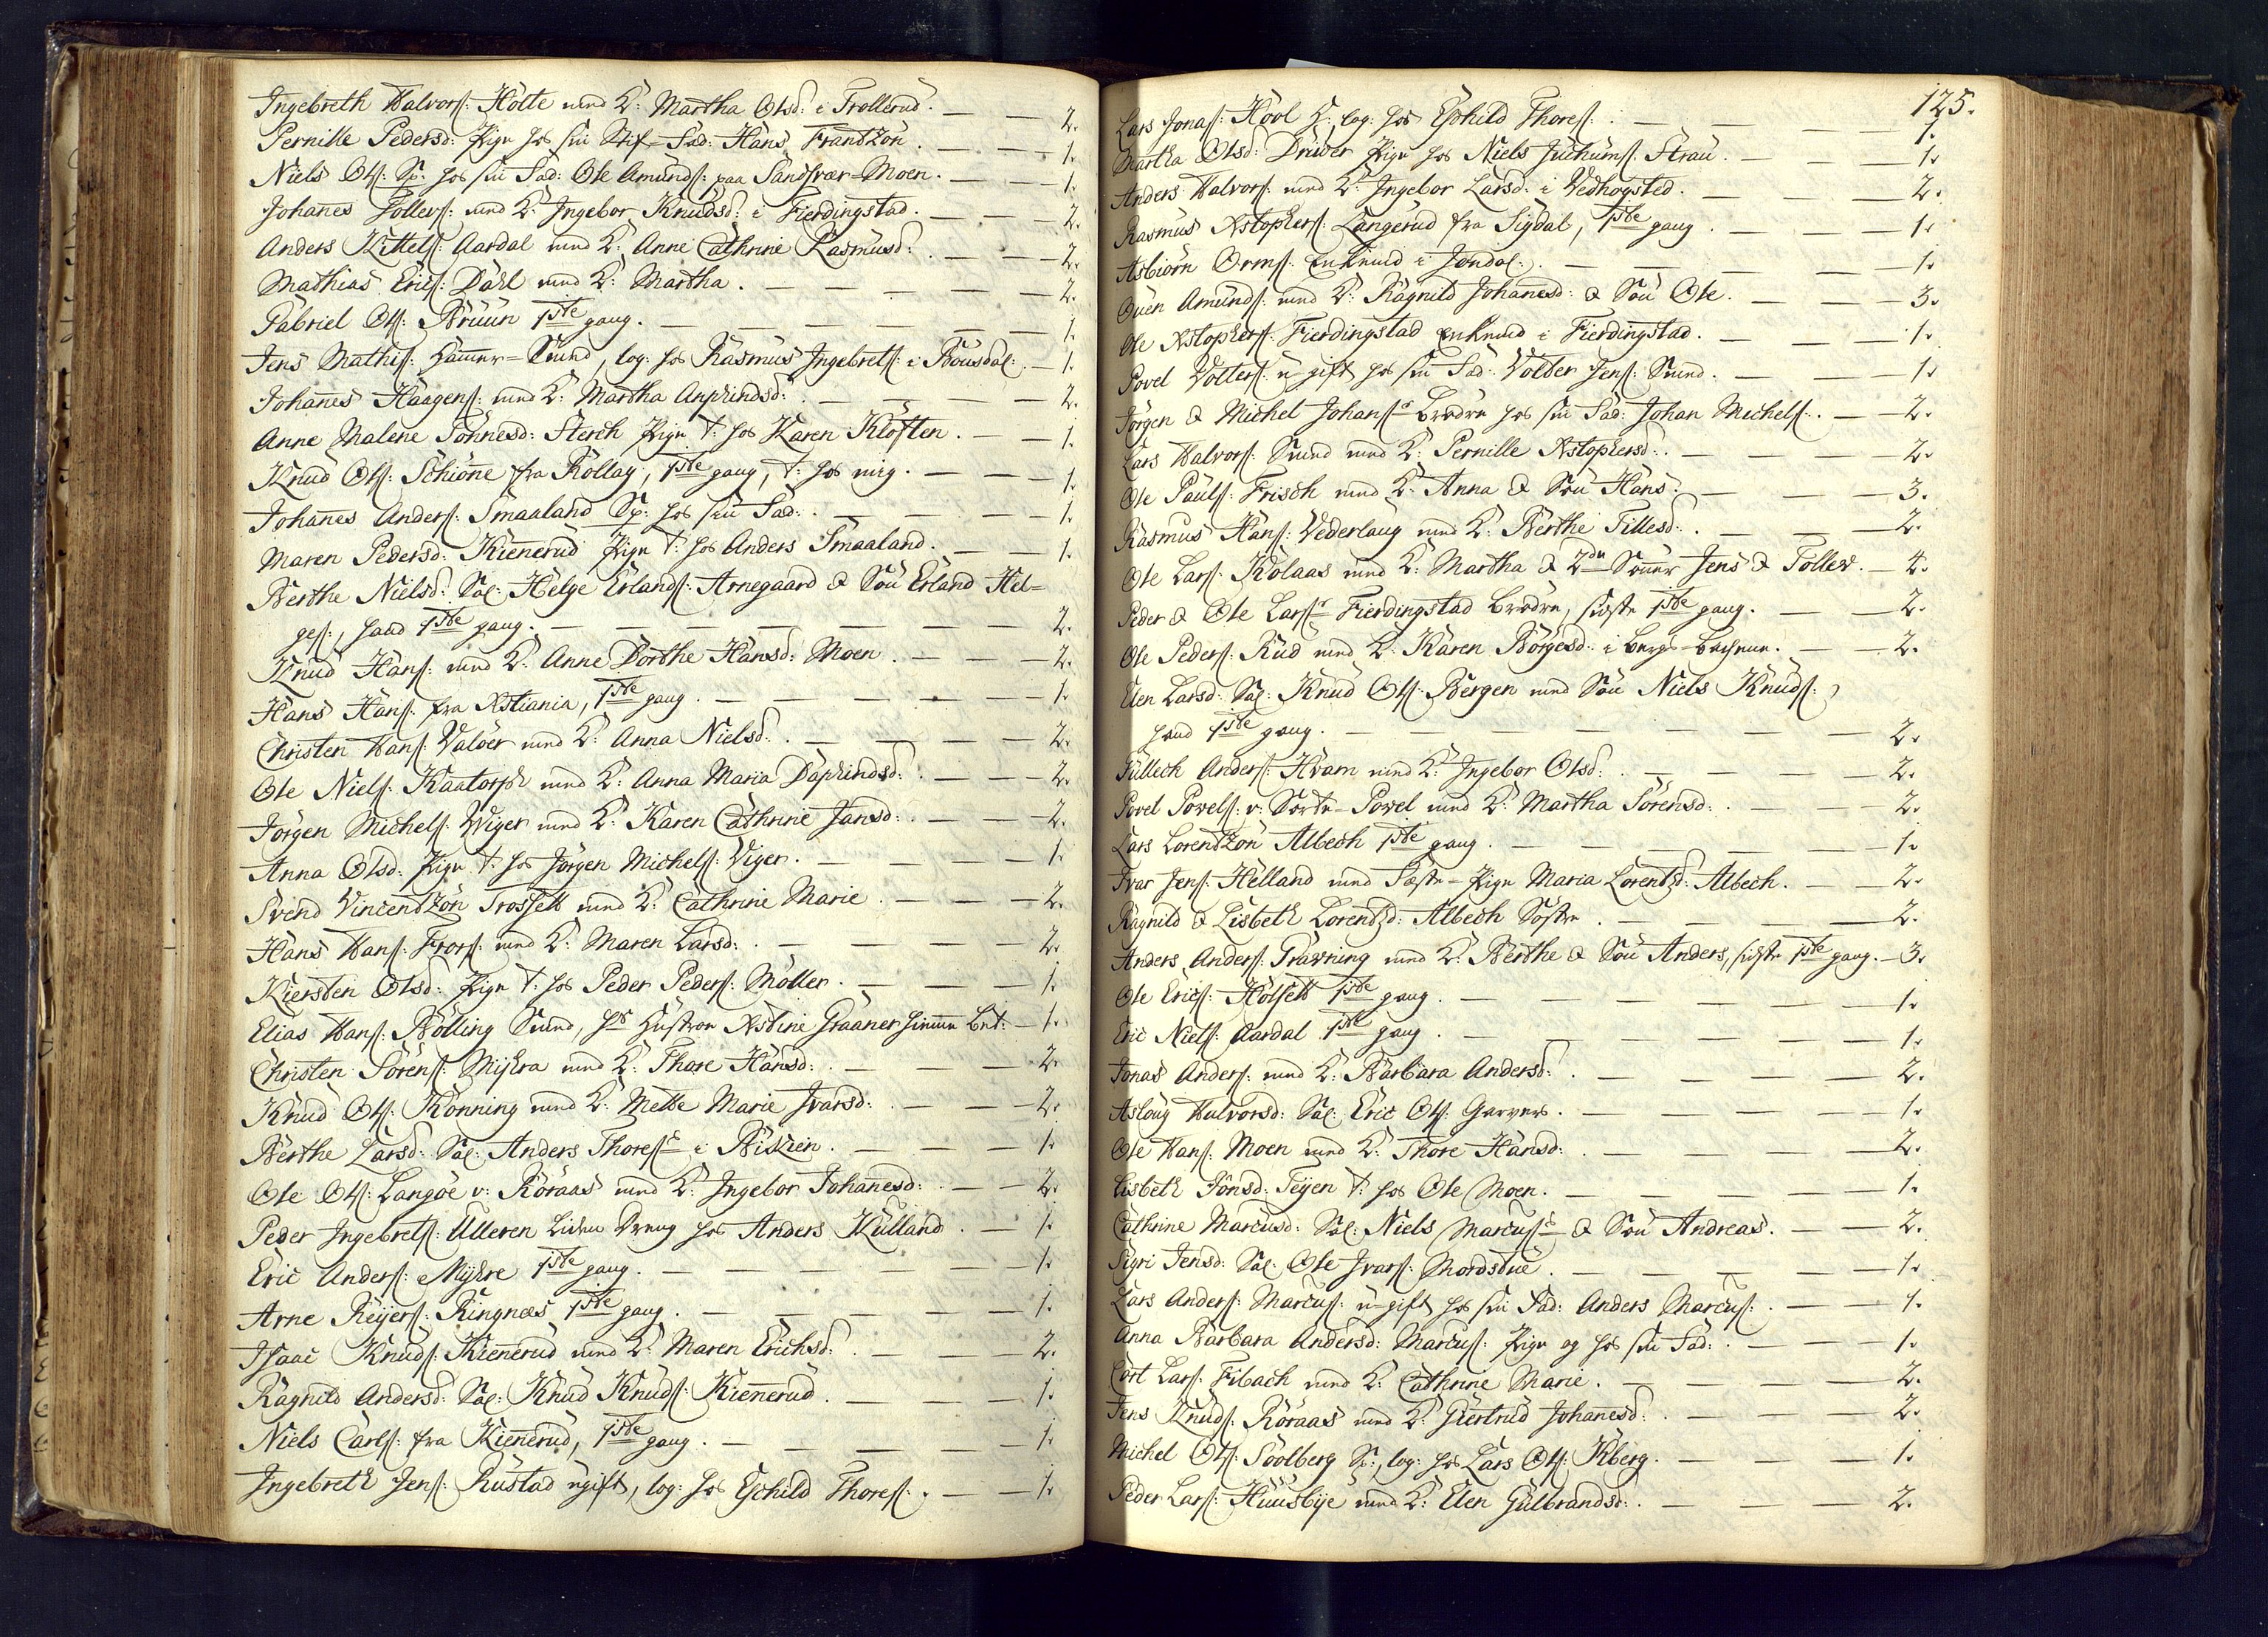 Ingebreth Halvors: Holte med K: Martha Olsd: i Trollerud. — — 2.
Pernille Pedersd: Pige hos sin Stif-Fad: Hans Frantzön. — — 1.
Niels Ols: Sv: hos sin Fad: Ole Amunds: paa Sandsvær-Moen. — — 1.
Johanes Tollevs: med K: Ingebor Knudsd: i Fierdingstad. — — 2.
Anders Kittels: Aardal med K: Anne Cathrine Rasmusd: — — 2.
Mathias Erics: Dahl med K: Martha. — — — — 2.
Gabriel Ols: Bruun 1ste gang. — — — — 1.
Jens Mathis: Hammer-Svend, log: hos Rasmus Ingebrets: i Bousdal: — 1.
Johanes Haagens: med K: Martha Anfindsd: — — — 2.
Anne Malene Tönnesd: Sterch Pige t: hos Karen Klöften. — — 1.
Knud Ols: Schiöne fra Rollag, 1ste gang, t: hos mig. — — 1.
Johanes Anders: Smaaland Sv: hos sin Fad: — — — 1.
Maren Pedersd: Kienerud Pige t: hos Anders Smaaland. — — 1.
Berthe Nielsd: Sal: Helge Erlands: Arnegaard & Sön Erland Hel-
ges:, hand 1ste gang. — — — — — 2.
Knud Hans: med K: Anne Dorthe Hansd: Moen. — — — 2.
Hans Hans: fra Xstiania, 1ste gang. — — — — 1.
Christen Hans: Valöer med K: Anna Nielsd: — — — 2.
Ole Niels: Kaatorp med K: Anna Maria Dafindsd: — — 2.
Jörgen Michels: Wiger med K: Karen Cathrine Jansd: — — 2.
Anna Olsd: Pige t: hos Jörgen Michels: Viger. — — — 1.
Svend Vincentzön Trosset med K: Cathrine Marie. — — 2.
Hans Hans: Frors: med K: Maren Larsd: — — — 2.
Kiersten Olsd: Pige t: hos Peder Peders: Möller. — — — 1.
Elias Hans: Bölling Svend, hs Hustroe Xstine Graaner hieme Ber: — 1.
Christen Sörens: Myhra med K: Thore Hansd: — — — 2.
Knud Ols: Rönning med K: Mette Marie Ivarsd: — — — 2.
Berthe Larsd: Sal: Anders Thoress i Bikien. — — — 1.
Ole Ols: Langöe v: Röraas med K: Ingebor Johanesd: — — 2.
Peder Ingebrets: Ulleren liden Dreng hos Anders Kulland. — 1.
Eric Anders: Myhre 1ste gang. — — — — 1.
Arne Reijers: Ringnæs 1ste gang. — — — — 1.
Isaac Knuds: Kienerud med K: Maren Erichsd: — — 2.
Ragnild Andersd: Sal: Knud Knuds: Kienerud. — — — 1.
Niels Carls: fra Kienerud, 1ste gang. — — — — 1.
Ingebreth Jens: Rustad ugift, log: hos Eschild Thores: — — 1.
125.
Lars Jonas: Hool K:, log: hos Eschild Thores: — — — 1.
Martha Olsd: Driver Pige hos Niels Juchums: Strau. — — 1.
Anders Halvors: med K: Ingebor Larsd: i Vedhogsted. — — 2.
Rasmus Xstophers: Langerud fra Sigdal, 1ste gang. — — 1.
Asbiörn Orms: Enkemd i Jondal. — — — — 1.
Ouen Amunds: med K: Ragnild Johanesd: & Sön Ole. — — 3.
Ole Xstophers: Fierdingstad Enkemd i Fierdingstad. — — 1.
Povel Volters: u-gift hos sin Fad: Volder Jens: Svend. — — 1.
Jörgen & Michel Johanss Brødre hos sin Fad: Johan Michels: — 2.
Lars Halvors: Svend med K: Pernille Xstophersd: — — 2.
Ole Pauls: Frisch med K: Anna & Sön Hans. — — 3.
Rasmus Hans: Vederlaug med K: Berthe Tillesd: — — 2.
Ole Lars: Kolaas med K: Martha & 2de Sönner Jens & Tollev. — 4.
Peder & Ole Larss Fierdingstad Brødre, sidste 1ste gang. — — 2.
Ole Peders: Rud med K: Karen Börgesd: i Bergs-Bachene. — 2.
Elen Larsd: Sal: Knud Ols: Bergen med Sön Niels Knuds:,
hand 1ste gang. — — — — — 2.
Tullech Anders: Hvam med K: Ingebor Olsd: — — — 2.
Povel Povels: v: Sorte-Povel med K: Martha Sörensd: — — 2.
Lars Lorentzön Albech 1ste gang. — — — — 1.
Ivar Jens: Helland med Fæste-Pige Maria Lorentzd: Albech. — 2.
Ragnild & Lisbeth Lorentzd: Albech Söstre. — — — 2.
Anders Anders: Gravning med K: Berthe & Sön Anders, sidste 1ste gang. — 3.
Ole Erics: Holset 1ste gang. — — — — 1.
Eric Niels: Aardal 1ste gang. — — — — 1.
Jonas Anders: med K: Barbara Andersd: — — — 2.
Aslaug Halvorsd: Sal: Eric Ols: Garvers. — — — 1.
Ole Hans: Moen med K: Thore Hansd: — — — 2.
Lisbeth Jonsd: Teijen t: hos Ole Moen. — — — 1.
Cathrine Marcusd: Sal: Niels Marcuss & Sön Andreas. — — 2.
Sigri Jensd: Sal: Ole Ivars: Mordstue. — — — 1.
Lars Anders: Marcus: u-gift hos sin Fad: Anders Marcus: — 1.
Anna Barbara Andersd: Marcus: Pige og hos sin Fad: — — 1.
Cort Lars: Fibach med K: Cathrine Marie. — — — 2.
Jens Knuds: Röraas med K: Giertrud Johanesd: — — 2.
Michel Ols: Soolberg Sv:, log: hos Lars Ols: Kberg. — — 1.
Peder Lars: Huusbÿe med K: Elen Gulbrandsd: — — 2.